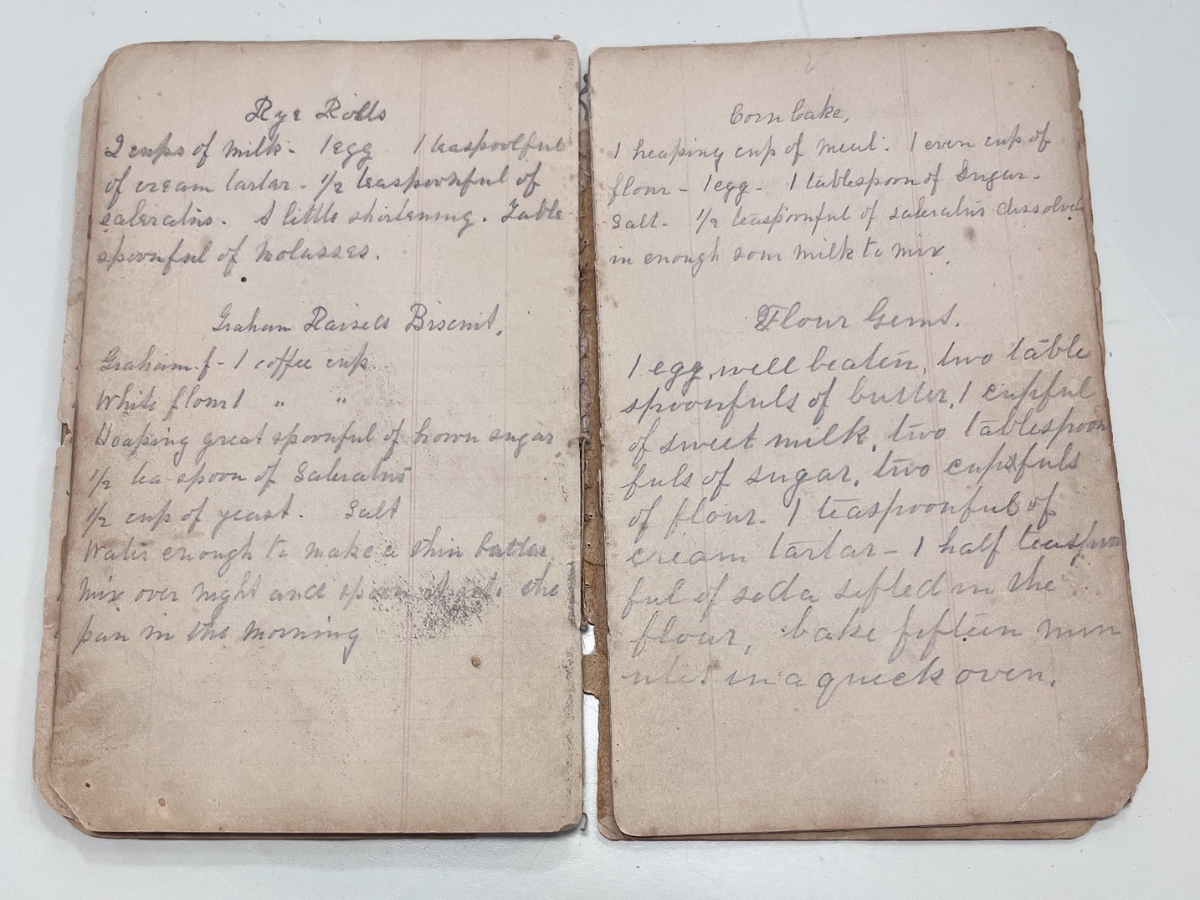 Rye Rolls
2 cups of milk - 1 egg 1 teaspoolful
of cream tartar - 1/2 teaspoonful of
saleratus. A little shortening. Table
spoonful of Molasses.
Graham Raised Biscuit,
Graham f - 1 coffee cup
White flour 1 " "
Heaping great spoonful of brown sugar
1/2 tea spoon of Saleratus
1/2 cup of yeast. Salt
Water enough to make a thin batter
Mix over night and spoon the
pan in the morning
Corn Cake,
1 heaping cup of meal. 1 even cup of
flour - 1 egg - 1 tablespoon of Sugar -
Salt. 1/2 teaspoonful of saleratus dissolved
in enough sour milk to mix.
Flour Gems.
1 egg, well beaten, two table
spoonfuls of butter, 1 cupful
of sweet milk, two tablespoon
fuls of sugar, two cupsfuls
of flour - 1 teaspoonful of
cream tartar - 1 half teaspoon
ful of soda sifted in the
flour, bake fifteen min
utes in a quick oven.